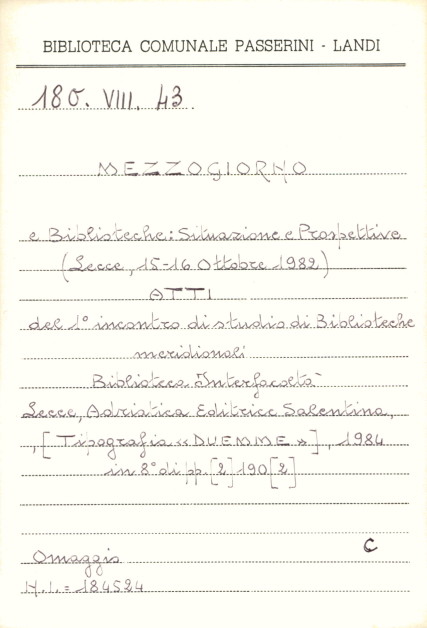 BIBLIOTECA COMUNALE PASSERINI - LANDI
180. VIII. 43.
MEZZOGIORNO
e Biblioteche: Situazione e Prospettive
(Lecce, 15-16 Ottobre 1982)
ATTI
del 1° incontro di studio di Biblioteche
meridionali
Biblioteca "Interfacoltà"
Lecce, Adriatica Editrice Salentina,
, [Tipografia «DUEMME»], 1984
in 8° di pp. [2] 190 [2]
C
Omaggio
N.I. = 184524